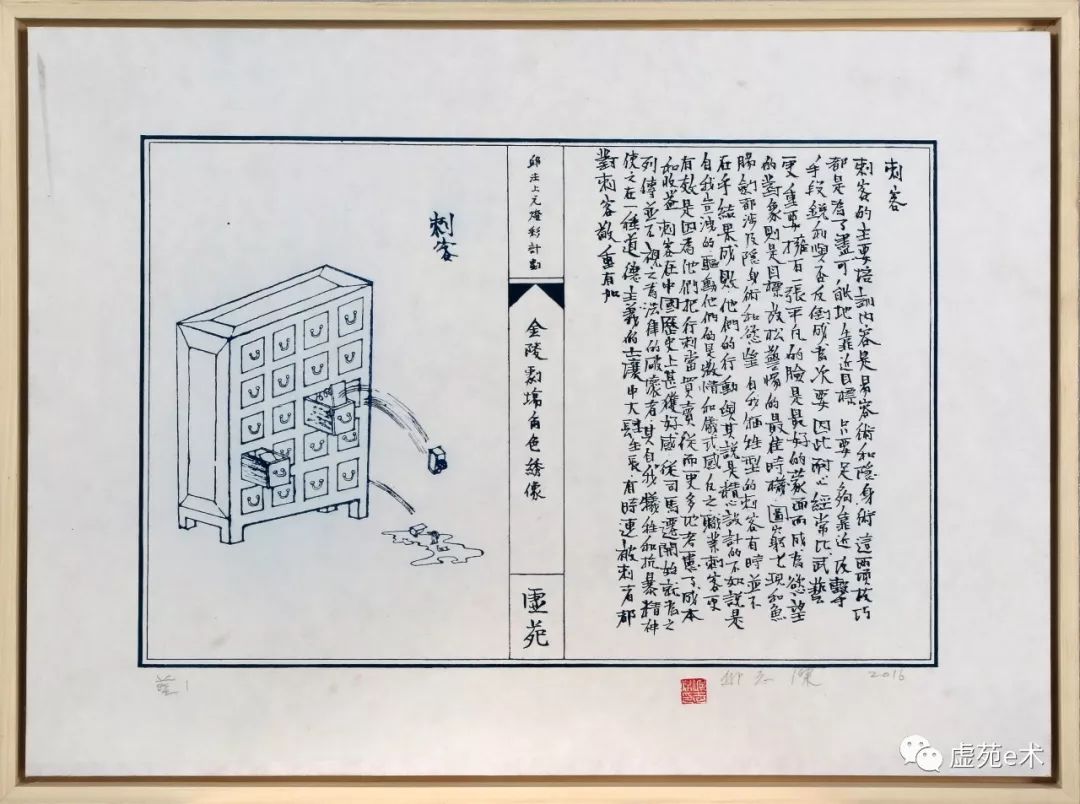 刺客
刺客的主要培訓内容是易容術和隐身術 這兩項技巧
都是為了盡可能地靠近目標 只要足夠靠近 攻擊
手段銳利與否反倒成為次要 因此耐心經常比武藝
更重要 擁有一張平凡的臉是最好的蒙面 而成為慾望
的對象則是目標放松警惕的最佳時機 圖窮匕現和魚
腸劍都涉及隱身術和慾望 自我犧牲型的刺客有時並不
在乎結果成敗 他們的行動與其說是精心設計的不如說是
自我宣洩的 驅動他們的是激情和儀式感 反之職業刺客更
有效是因為他們把行刺當買賣 從而更多地考慮了成本
和收益 刺客在中國歷史上甚獲好感 從司馬遷開始就為之
列傳並不視之為法律的破壞者 其自我犧牲和抗暴精神
使之在一種道德主義的土壤中大肆生長 有時連被刺者都
對刺客敬重有加
邱注上元燈彩計劃
金陵劇場角色繡像
虛苑
刺客
藍1
2016
虚苑e术